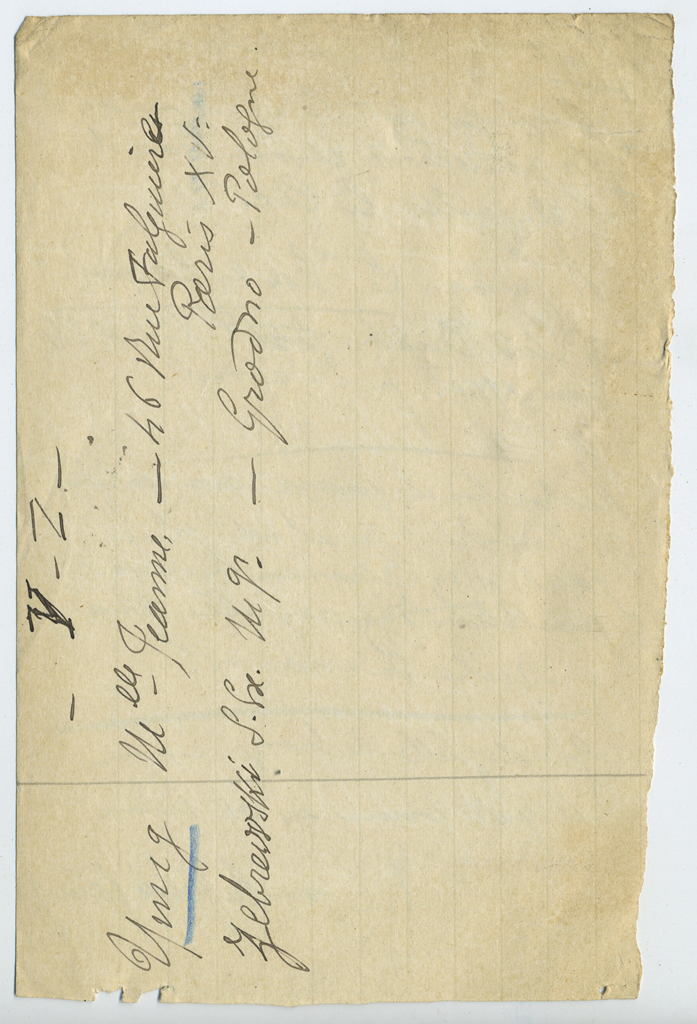 - Y - Z -
Ymig Mlle Jeanne, — 46 Rue Falguière
Paris XV.
Zebrewski S. Ex. Mgr. — Grodno - Pologne.